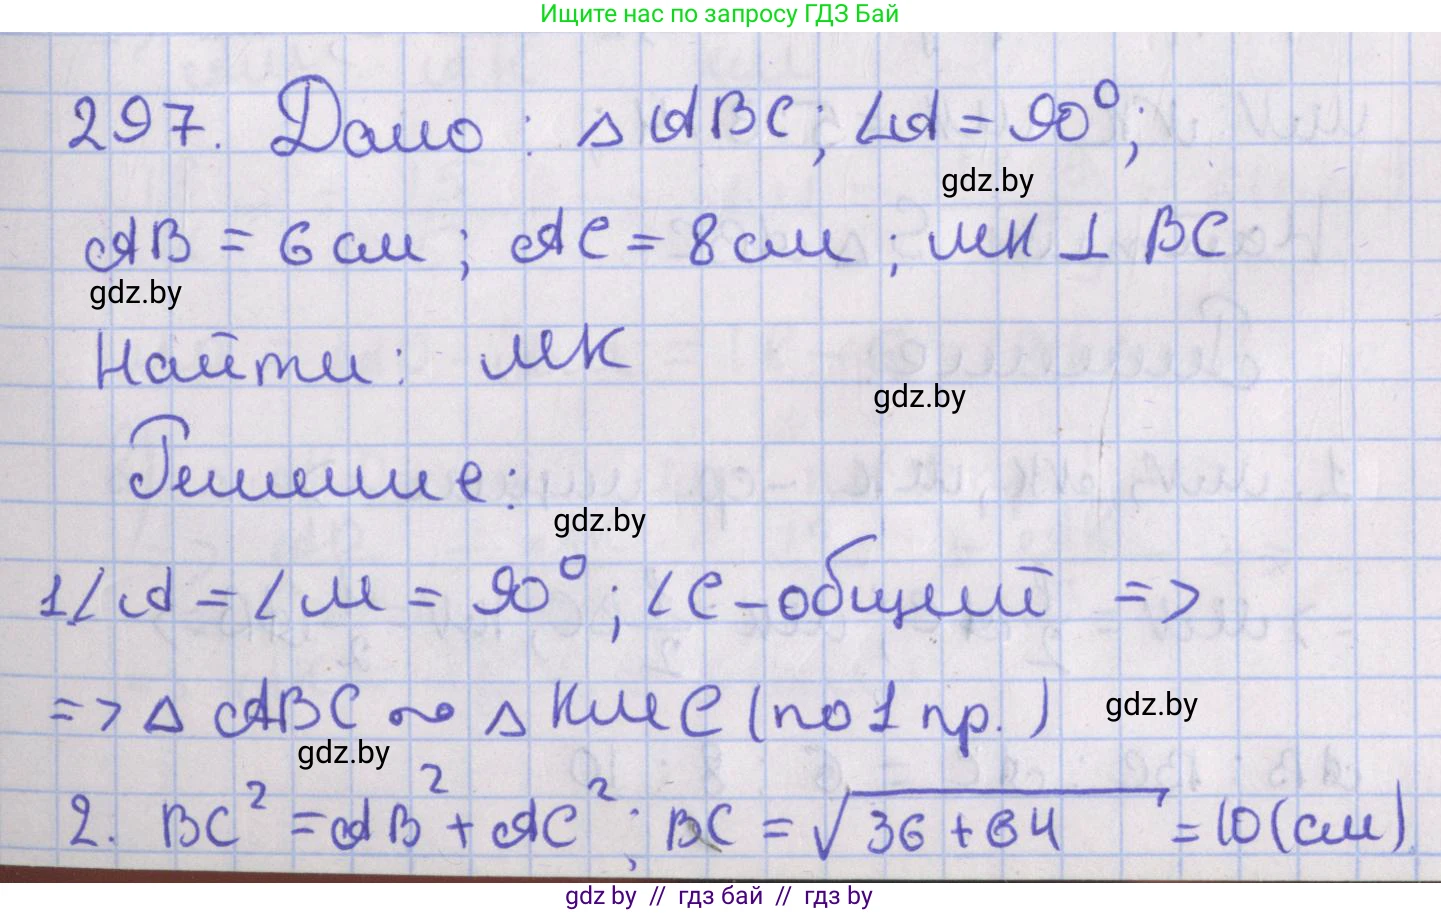 Ищите нас по запросу ГДЗ Бай
297. Дано: △ ABC; ∠A = 90°;
gdz.by
AB = 6 см; AC = 8 см; МК ⊥ BC
gdz.by
Найти: МК
gdz.by
Решение:
gdz.by
1∠A = ∠М = 90°; ∠C - общий =>
=> △ ABC ~ △ КМС (по 1 пр.)
gdz.by
gdz.by
2. BC² = AB² + AC²; BC = √36 + 64 = 10 (см)
gdz.by // гдз бай // гдз by